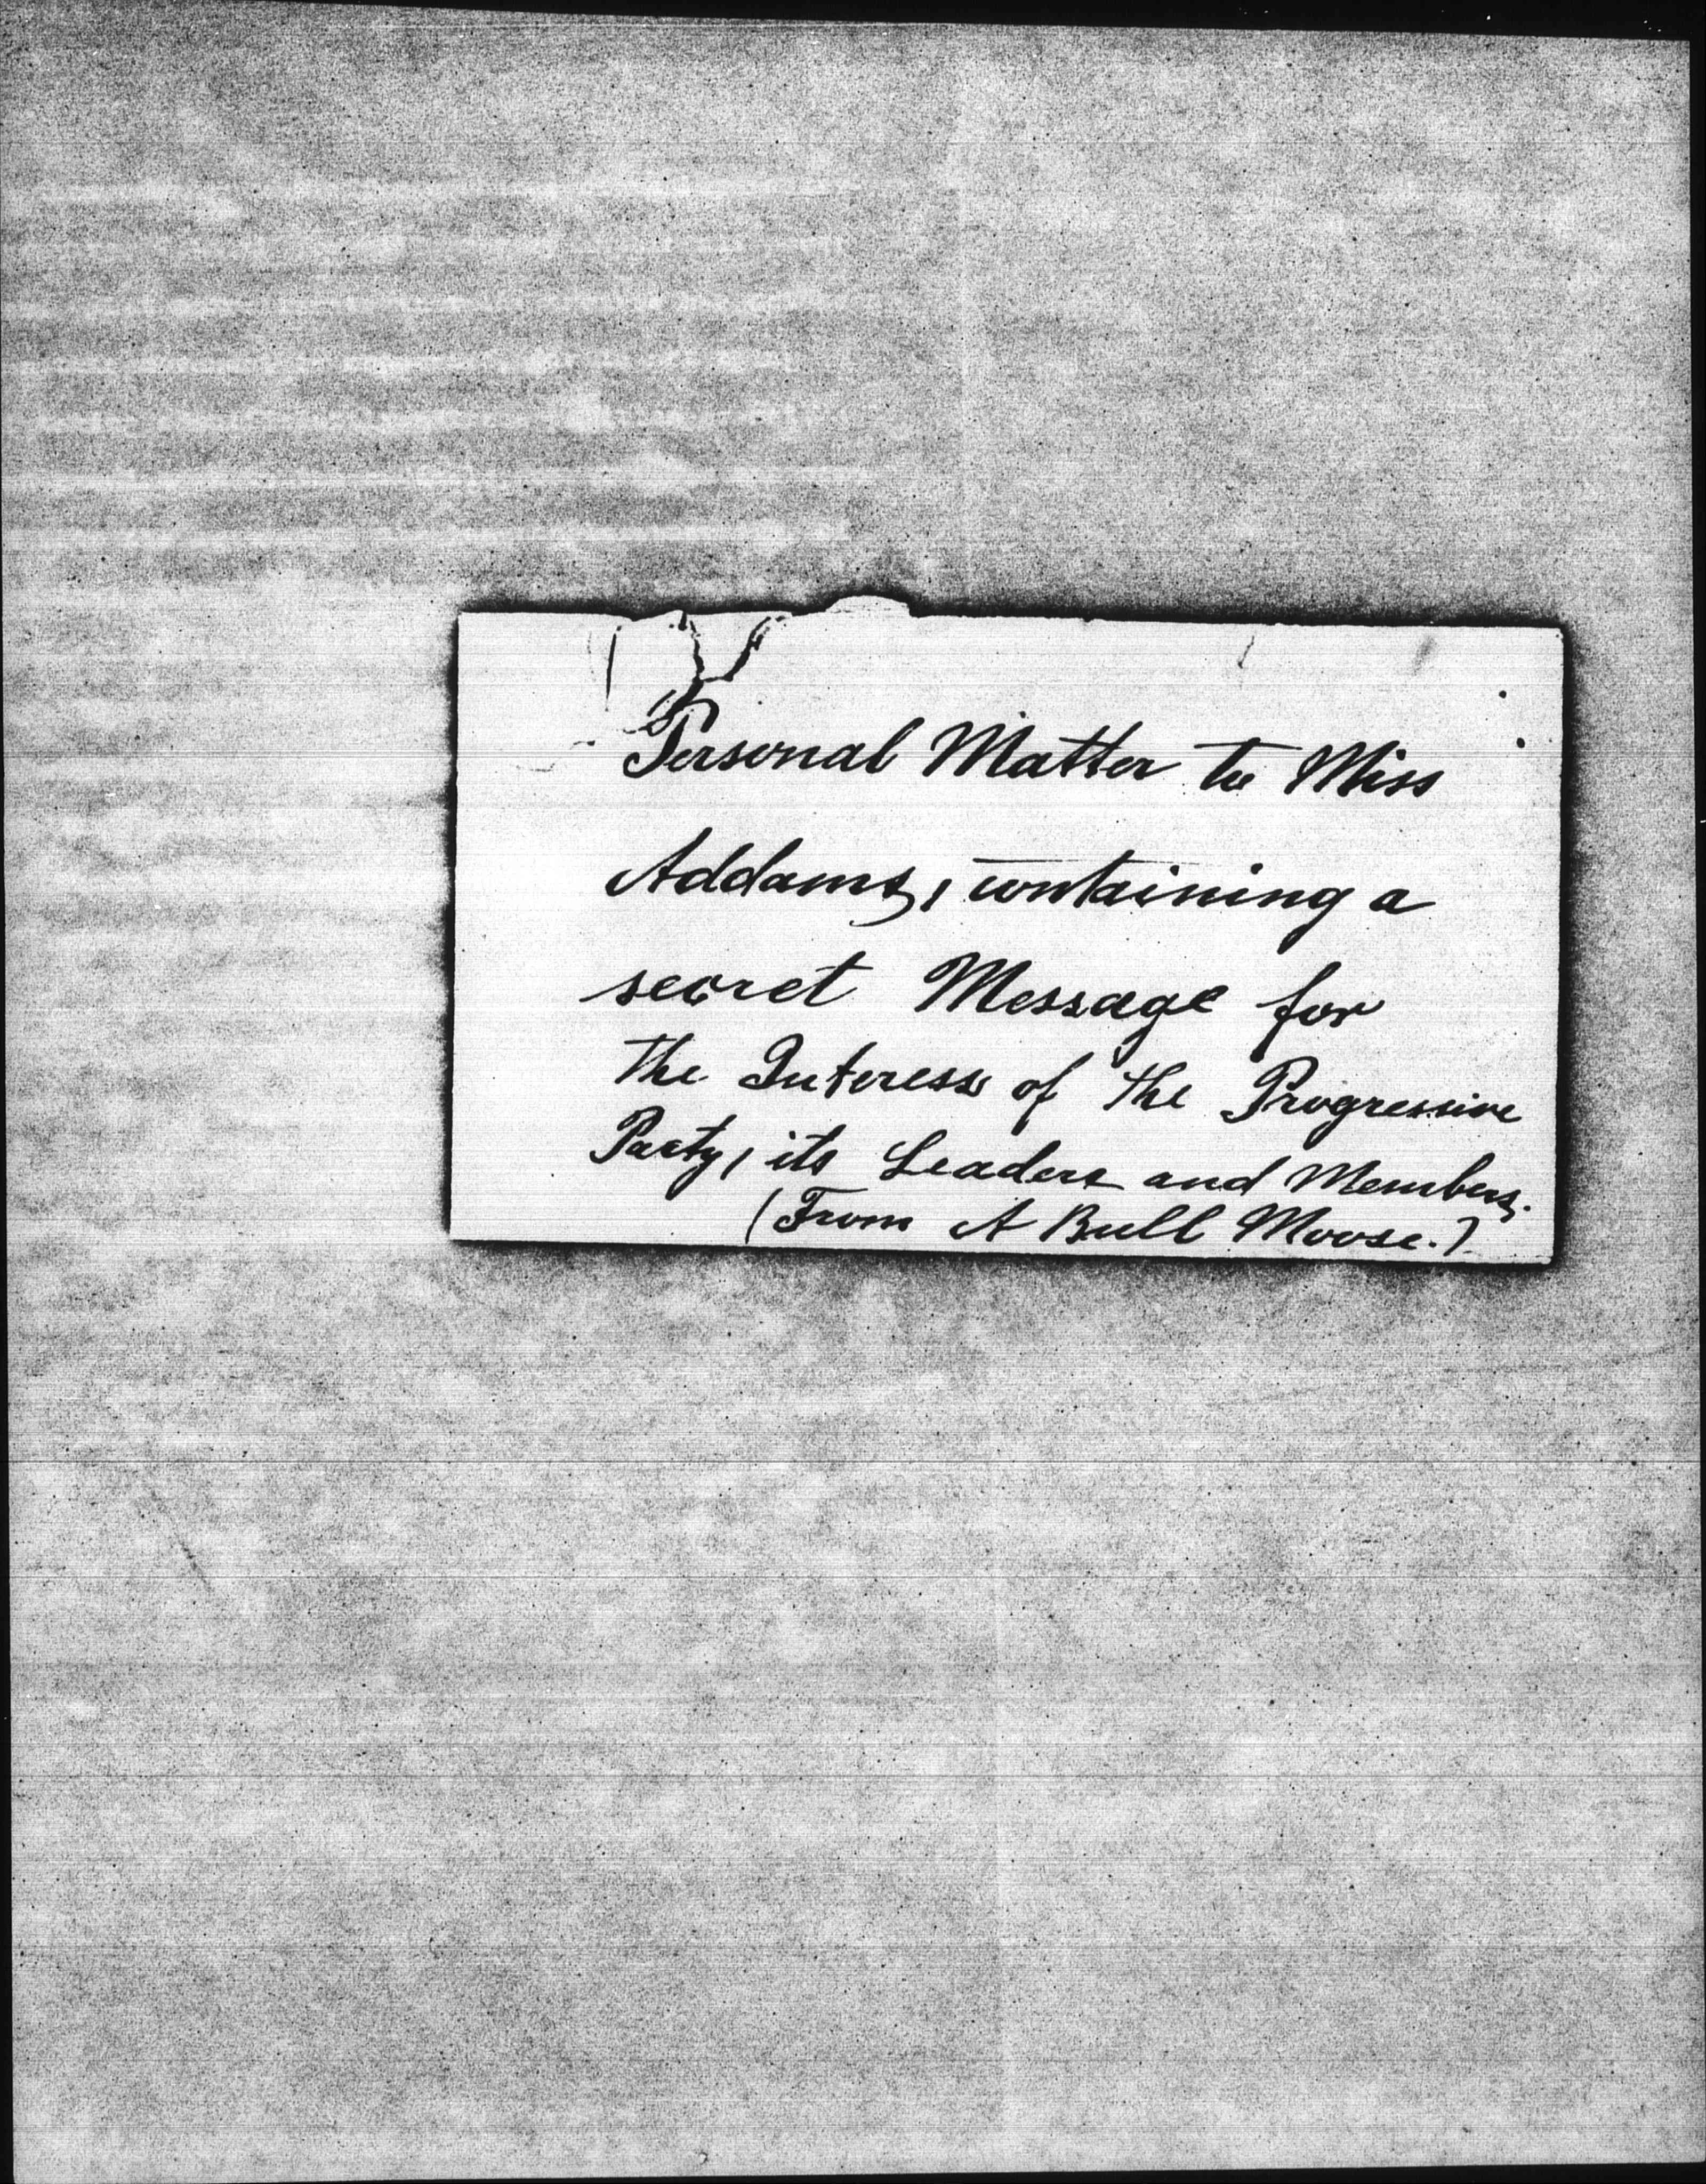 Personal Matter to Miss
Addams, containing a
secret Message for
the Interess of the Progressive
Party, its Leaders and Members.
(From A Bull Moose.)